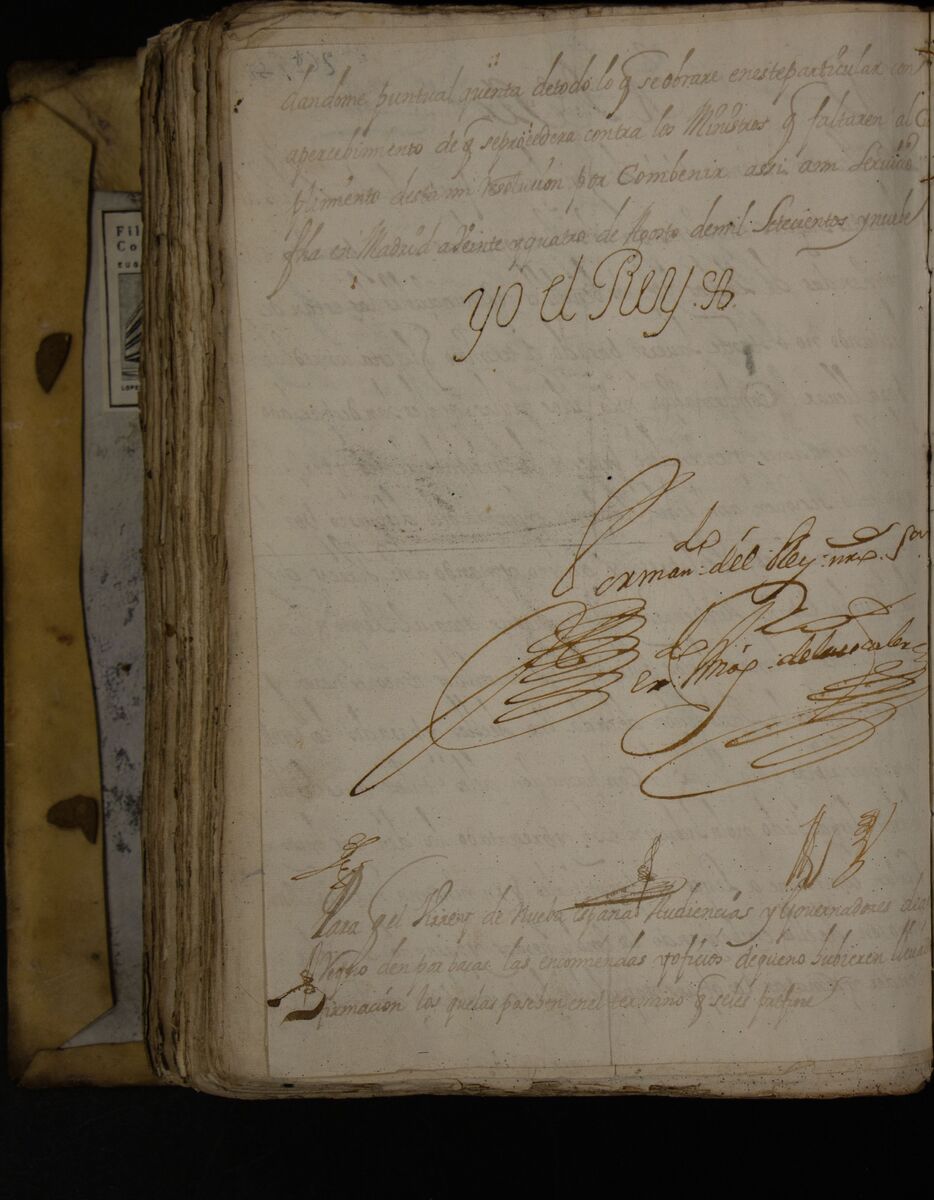 dandome puntual quenta detodo lo q̃ se obrare eneste particular con
apercebimiento de q̃ seprocedera contra los Ministros q̃ faltaren al Cu
plimiento desta mi resoluzion por Combenir assi ami Servicio
fha en Madrid aveinte y quatro de Agosto demil Setecientos ynuebe
yo el Rey
Por mando del Rey nro Sor
Para q̃ el Virrey de Nueba españa Audiencias y Governadores de la
den por bacas las encomiendas yoficios dequeno hubieren lleva
firmacion los quelas poseen enel termino q̃ seles prefine
Fil
Co
EUG
LOPE